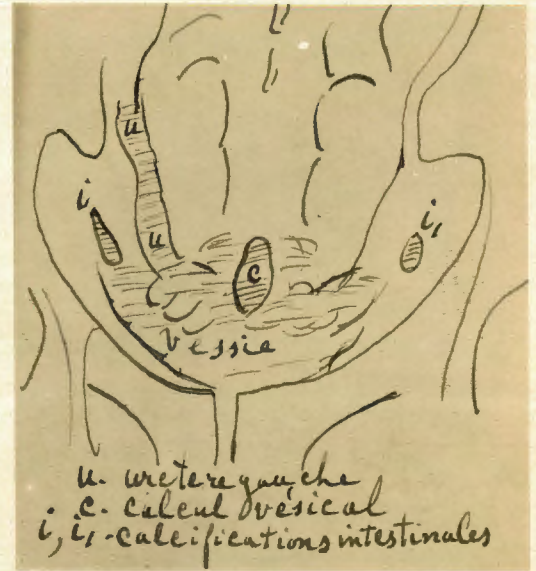 u
i
i,
u
c
Vessie
u. uretere gauche
c. calcul vésical
i, i, - calcifications intestinales